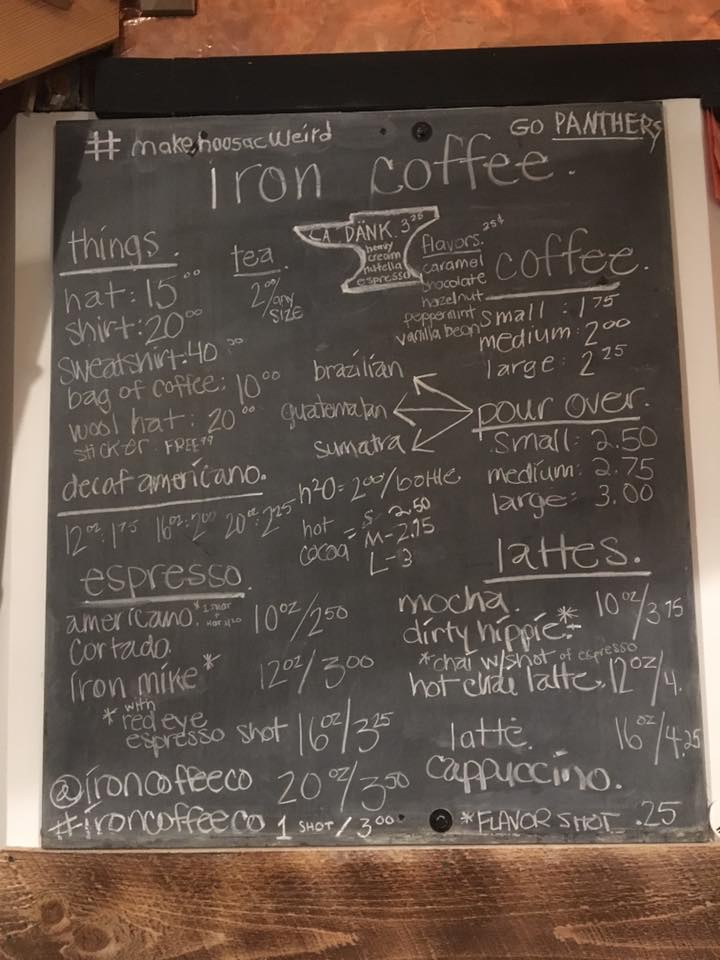 #makehoosacweird
GO PANTHERS
iron coffee.
things.
hat: 15⁰⁰
shirt: 20⁰⁰
sweatshirt: 40
bag of coffee: 10⁰⁰
wool hat: 20⁰⁰
sticker FREE
tea.
2⁰⁰/any
SIZE
LA DÄNK. 3²⁵
heavy
cream
nutella
espresso
flavors. 25¢
caramel
chocolate
hazelnut
peppermint
vanilla bean
coffee.
small: 1⁷⁵
medium: 2⁰⁰
large: 2²⁵
pour over.
brazilian
guatemalan
sumatra
small: 2.50
medium: 2.75
large: 3.00
decaf americano.
12oz: 1⁷⁵ 16oz: 2⁰⁰ 20oz: 2²⁵
h²O = 2⁰⁰/bottle
hot cocoa =
S - 2.50
M - 2.75
L - 3
espresso.
americano. *1 shot +
cortado.
iron mike*
*with
red eye
espresso shot
10oz/2⁵⁰
12oz/3⁰⁰
16oz/3²⁵
20oz/3⁵⁰
1 SHOT/3⁰⁰
@ironcoffeeco
#ironcoffeeco
lattes.
mocha.
dirty hippie*
*chai w/shot of espresso
hot chai latte.
latte.
cappuccino.
10oz/3.75
12oz/4.
16oz/4.25
*FLAVOR SHOT .25